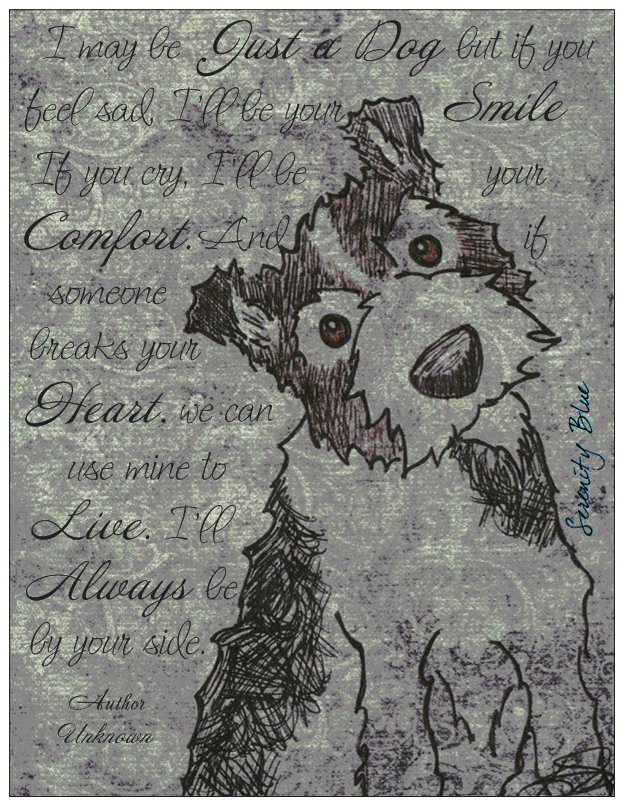 I may be Just a Dog but if you
feel sad, I'll be your Smile
If you cry, I'll be your
Comfort. And if
someone
breaks your
Heart, we can
use mine to
Live. I'll
Always be
by your side.
Author
Unknown
Serenity Blue